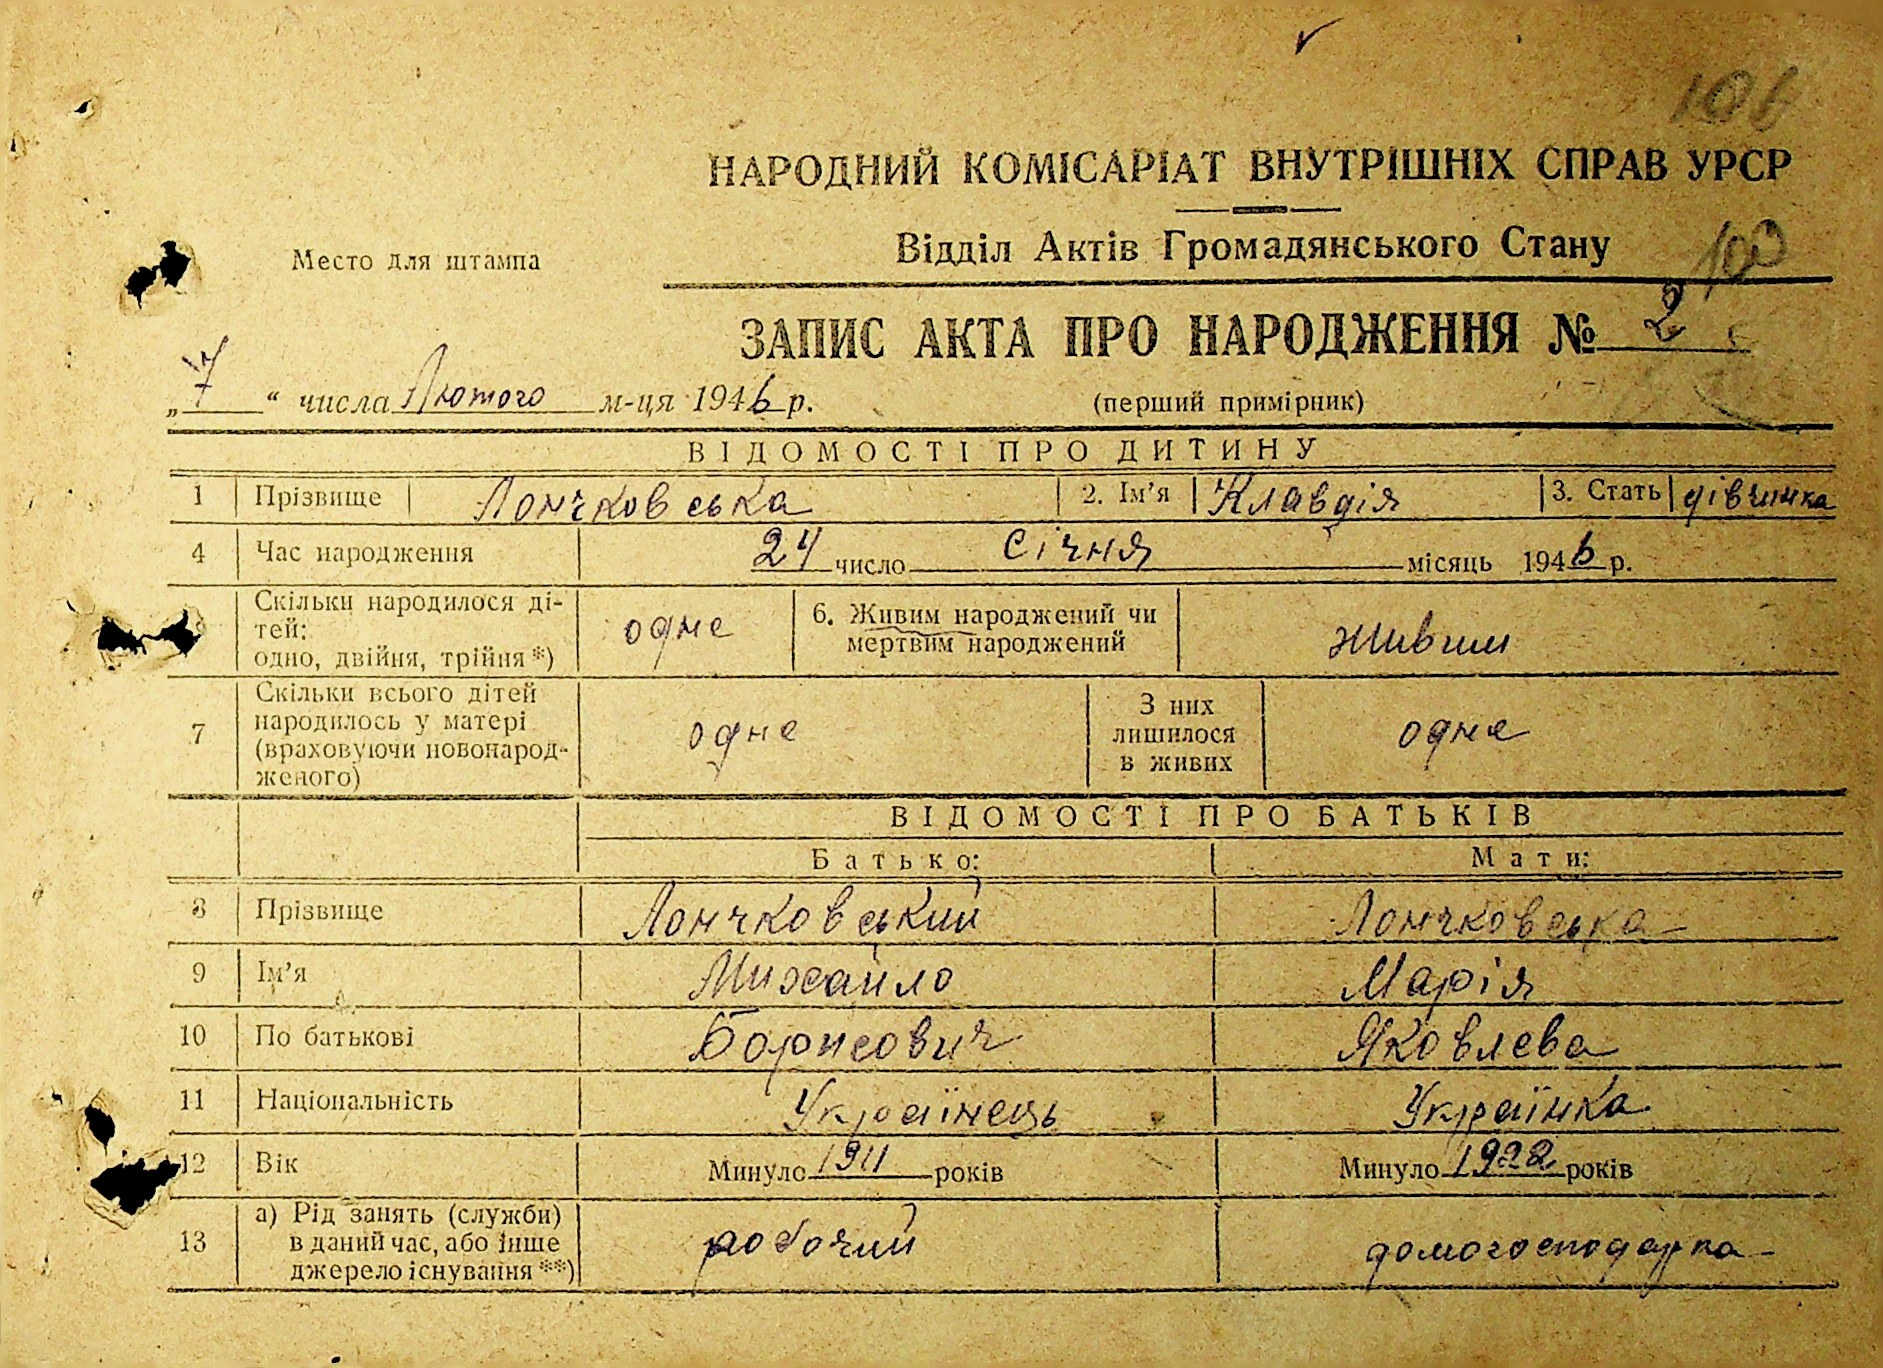 НАРОДНИЙ КОМІСАРІАТ ВНУТРІШНІХ СПРАВ УРСР
Место для штампа
Відділ Актів Громадянського Стану
100
ЗАПИС АКТА ПРО НАРОДЖЕННЯ № 2
„7“ числа Лютого м-ця 1946 р.
(перший примірник)
ВІДОМОСТІ ПРО ДИТИНУ
1 Прізвище Лончковська 2. Ім'я Клавдія 3. Стать дівчинка
4 Час народження 24 число Січня місяць 1946 р.
Скільки народилося ді-
тей:
одно, двійня, трійня*) одне 6. Живим народжений чи
мертвим народжений живим
7 Скільки всього дітей
народилось у матері
(враховуючи новонарод-
женого) одне З них
лишилося
в живих одне
ВІДОМОСТІ ПРО БАТЬКІВ
Батько: Мати:
8 Прізвище Лончковський Лончковська
9 Ім'я Михайло Марія
10 По батькові Борисович Яковлева
11 Національність Українець Українка
12 Вік Минуло 1911 років Минуло 1922 років
13 а) Рід занять (служби)
в даний час, або інше
джерело існування**) робочий домогосподарка